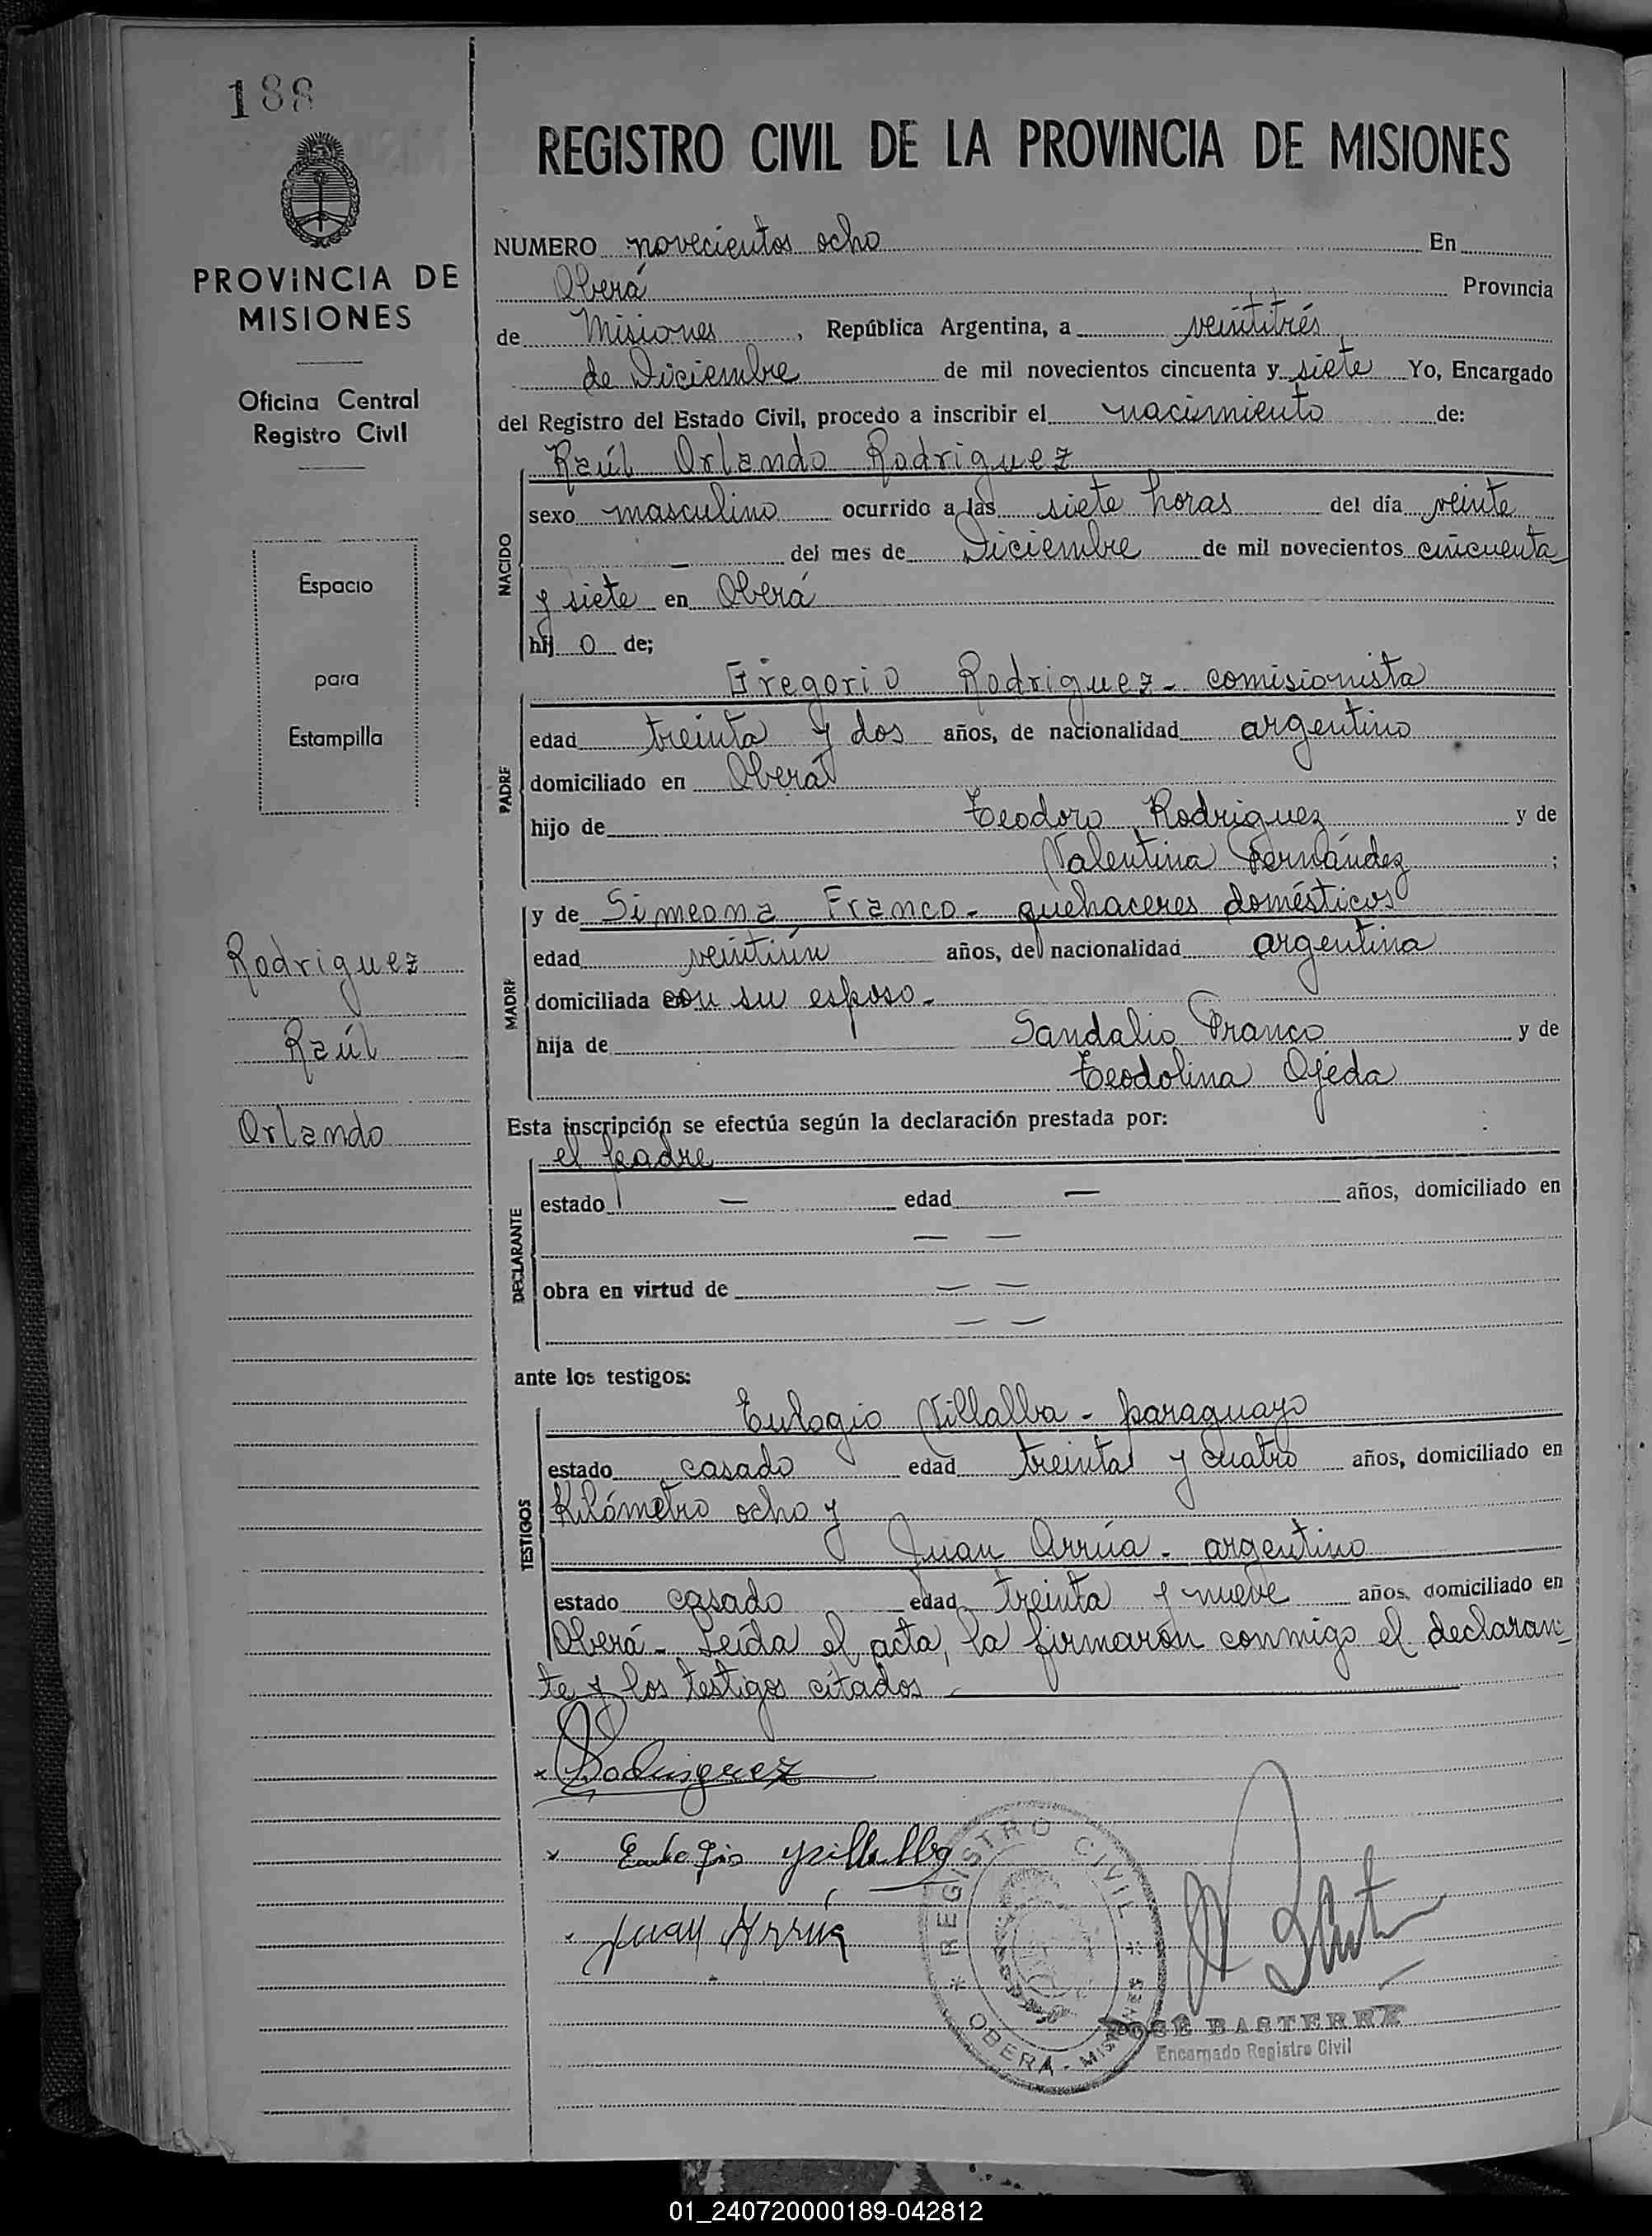 188
PROVINCIA DE
MISIONES
Oficina Central
Registro Civil
Espacio
para
Estampilla
Rodriguez
Raúl
Orlando
REGISTRO CIVIL DE LA PROVINCIA DE MISIONES
NUMERO novecientos ocho En
Oberá Provincia
de Misiones, República Argentina, a veintitrés
de Diciembre de mil novecientos cincuenta y siete Yo, Encargado
del Registro del Estado Civil, procedo a inscribir el nacimiento de:
Raúl Orlando Rodriguez
NACIDO
sexo masculino ocurrido a las siete horas del día veinte
— del mes de Diciembre de mil novecientos cincuenta
y siete en Oberá
hij o de;
Gregorio Rodriguez - comisionista
PADRE
edad treinta y dos años, de nacionalidad argentino
domiciliado en Oberá
hijo de Teodoro Rodriguez y de
Valentina Fernández ;
y de Simeona Franco - quehaceres domésticos
MADRE
edad veintiún años, de nacionalidad argentina
domiciliada con su esposo -
hija de Sandalio Franco y de
Teodolina Ojeda
Esta inscripción se efectúa según la declaración prestada por:
el padre
DECLARANTE
estado — edad — años, domiciliado en
— —
obra en virtud de — —
— —
ante los testigos:
Eulogio Villalba - paraguayo
TESTIGOS
estado casado edad treinta y cuatro años, domiciliado en
Kilómetro ocho y
Juan Arrúa - argentino
estado casado edad treinta y nueve años, domiciliado en
Oberá - Leída el acta, la firmaron conmigo el declaran-
te y los testigos citados -
x Rodriguez
x Eulogio Villalba
Juan Arrúa
* REGISTRO CIVIL *
OBERA - MISIONES
JOSÉ BASTERRA
Encargado Registro Civil
01_240720000189-042812